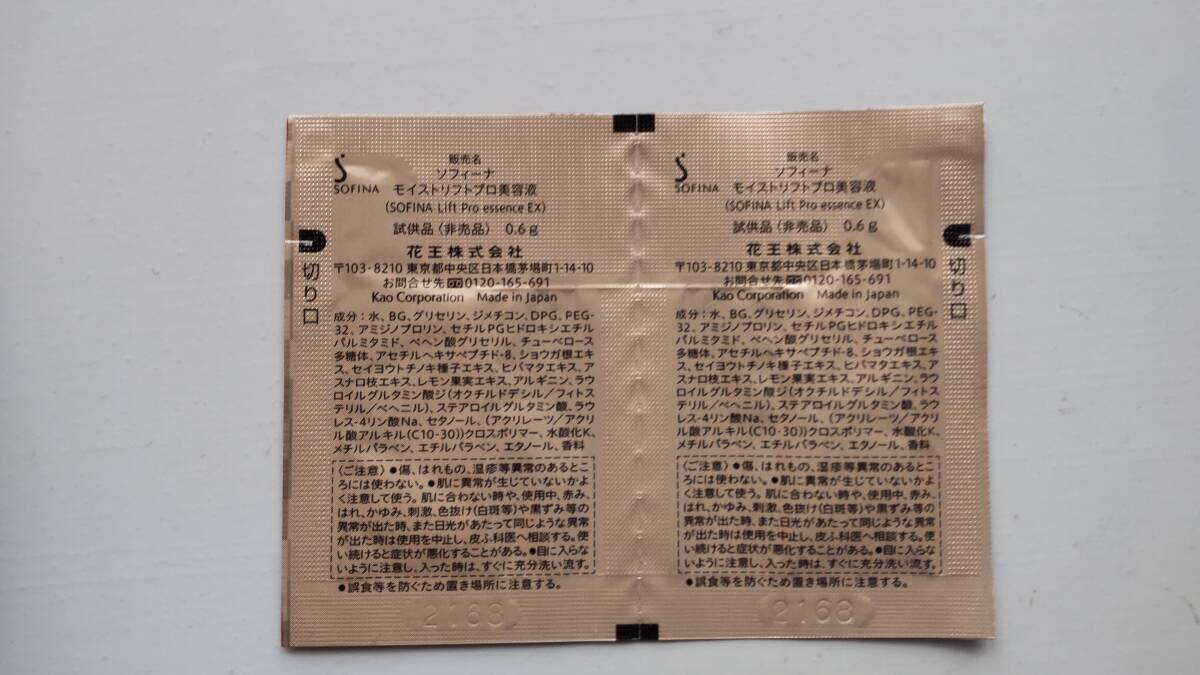 販売名
ソフィーナ
SOFINA モイストリフトプロ美容液
(SOFINA Lift Pro essence EX)
試供品〈非売品〉 0.6g
花王株式会社
〒103-8210 東京都中央区日本橋茅場町1-14-10
お問合せ先 0120-165-691
Kao Corporation Made in Japan
成分:水、BG、グリセリン、ジメチコン、DPG、PEG-
32、アミジノプロリン、セチルPGヒドロキシエチル
パルミタミド、ベヘン酸グリセリル、チューベロース
多糖体、アセチルヘキサペプチド-8、ショウガ根エキ
ス、セイヨウトチノキ種子エキス、ヒバマタエキス、ア
スナロ枝エキス、レモン果実エキス、アルギニン、ラウ
ロイルグルタミン酸ジ(オクチルドデシル/フィトス
テリル/ベヘニル)、ステアロイルグルタミン酸、ラウ
レス-4リン酸Na、セタノール、(アクリレーツ/アクリ
ル酸アルキル(C10-30))クロスポリマー、水酸化K、
メチルパラベン、エチルパラベン、エタノール、香料
〈ご注意〉●傷、はれもの、湿疹等異常のあるとこ
ろには使わない。●肌に異常が生じていないかよ
く注意して使う。肌に合わない時や、使用中、赤み、
はれ、かゆみ、刺激、色抜け(白斑等)や黒ずみ等の
異常が出た時、また日光があたって同じような異常
が出た時は使用を中止し、皮ふ科医へ相談する。使
い続けると症状が悪化することがある。●目に入らな
いように注意し、入った時は、すぐに充分洗い流す。
●誤食等を防ぐため置き場所に注意する。
2168
切り口
販売名
ソフィーナ
SOFINA モイストリフトプロ美容液
(SOFINA Lift Pro essence EX)
試供品〈非売品〉 0.6g
花王株式会社
〒103-8210 東京都中央区日本橋茅場町1-14-10
お問合せ先 0120-165-691
Kao Corporation Made in Japan
成分:水、BG、グリセリン、ジメチコン、DPG、PEG-
32、アミジノプロリン、セチルPGヒドロキシエチル
パルミタミド、ベヘン酸グリセリル、チューベロース
多糖体、アセチルヘキサペプチド-8、ショウガ根エキ
ス、セイヨウトチノキ種子エキス、ヒバマタエキス、ア
スナロ枝エキス、レモン果実エキス、アルギニン、ラウ
ロイルグルタミン酸ジ(オクチルドデシル/フィトス
テリル/ベヘニル)、ステアロイルグルタミン酸、ラウ
レス-4リン酸Na、セタノール、(アクリレーツ/アクリ
ル酸アルキル(C10-30))クロスポリマー、水酸化K、
メチルパラベン、エチルパラベン、エタノール、香料
〈ご注意〉●傷、はれもの、湿疹等異常のあるとこ
ろには使わない。●肌に異常が生じていないかよ
く注意して使う。肌に合わない時や、使用中、赤み、
はれ、かゆみ、刺激、色抜け(白斑等)や黒ずみ等の
異常が出た時、また日光があたって同じような異常
が出た時は使用を中止し、皮ふ科医へ相談する。使
い続けると症状が悪化することがある。●目に入らな
いように注意し、入った時は、すぐに充分洗い流す。
●誤食等を防ぐため置き場所に注意する。
2168
切り口